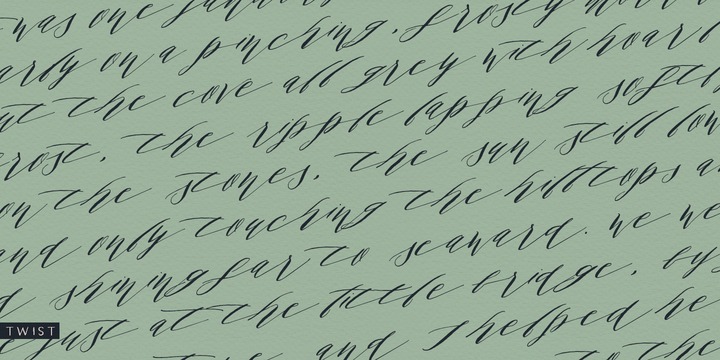 was one
arly on a pinching, frosty
at the cove all grey with hoar
frost, the ripple lapping softly
on the stones, the sun still low
and only touching the hilltops
and shining far to seaward. we we
just at the little bridge, by
and I helped he
to the
TWIST